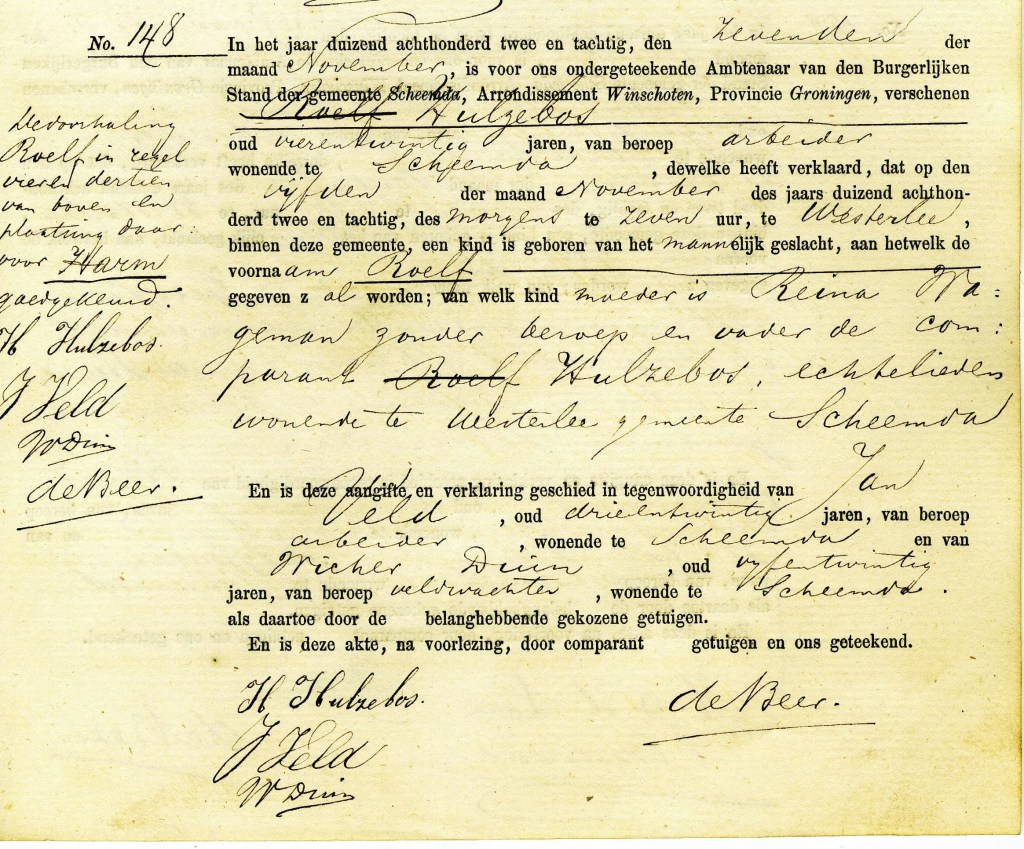 No. 148
In het jaar duizend achthonderd twee en tachtig, den zevenden der
maand November, is voor ons ondergeteekende Ambtenaar van den Burgerlijken
Stand der gemeente Scheemda, Arrondissement Winschoten, Provincie Groningen, verschenen
Roelf Hulzebos
oud vierentwintig jaren, van beroep arbeider
wonende te Scheemda, dewelke heeft verklaard, dat op den
vijfden der maand November des jaars duizend achthon-
derd twee en tachtig, des morgens te zeven uur, te Westerlee,
binnen deze gemeente, een kind is geboren van het mannelijk geslacht, aan hetwelk de
voornaam Roelf
gegeven zal worden; van welk kind moeder is Reina Wa=
geman zonder beroep en vader de com:
parant Roelf Hulzebos, echtelieden
wonende te Westerlee gemeente Scheemda
En is deze aangifte en verklaring geschied in tegenwoordigheid van Jan
Veld, oud drieentwintig jaren, van beroep
arbeider, wonende te Scheemda en van
Wicher Duin, oud vyfentwintig
jaren, van beroep veldwachter, wonende te Scheemda.
als daartoe door de belanghebbende gekozene getuigen.
En is deze akte, na voorlezing, door comparant getuigen en ons geteekend.
H Hulzebos.
J Veld
W Duin
de Beer.
De doorhaling
Roelf in regel
vier en dertien
van boven en
plaatsing daar:
voor Harm
goedgekeurd.
H Hulzebos.
J Veld
W Duin
de Beer.